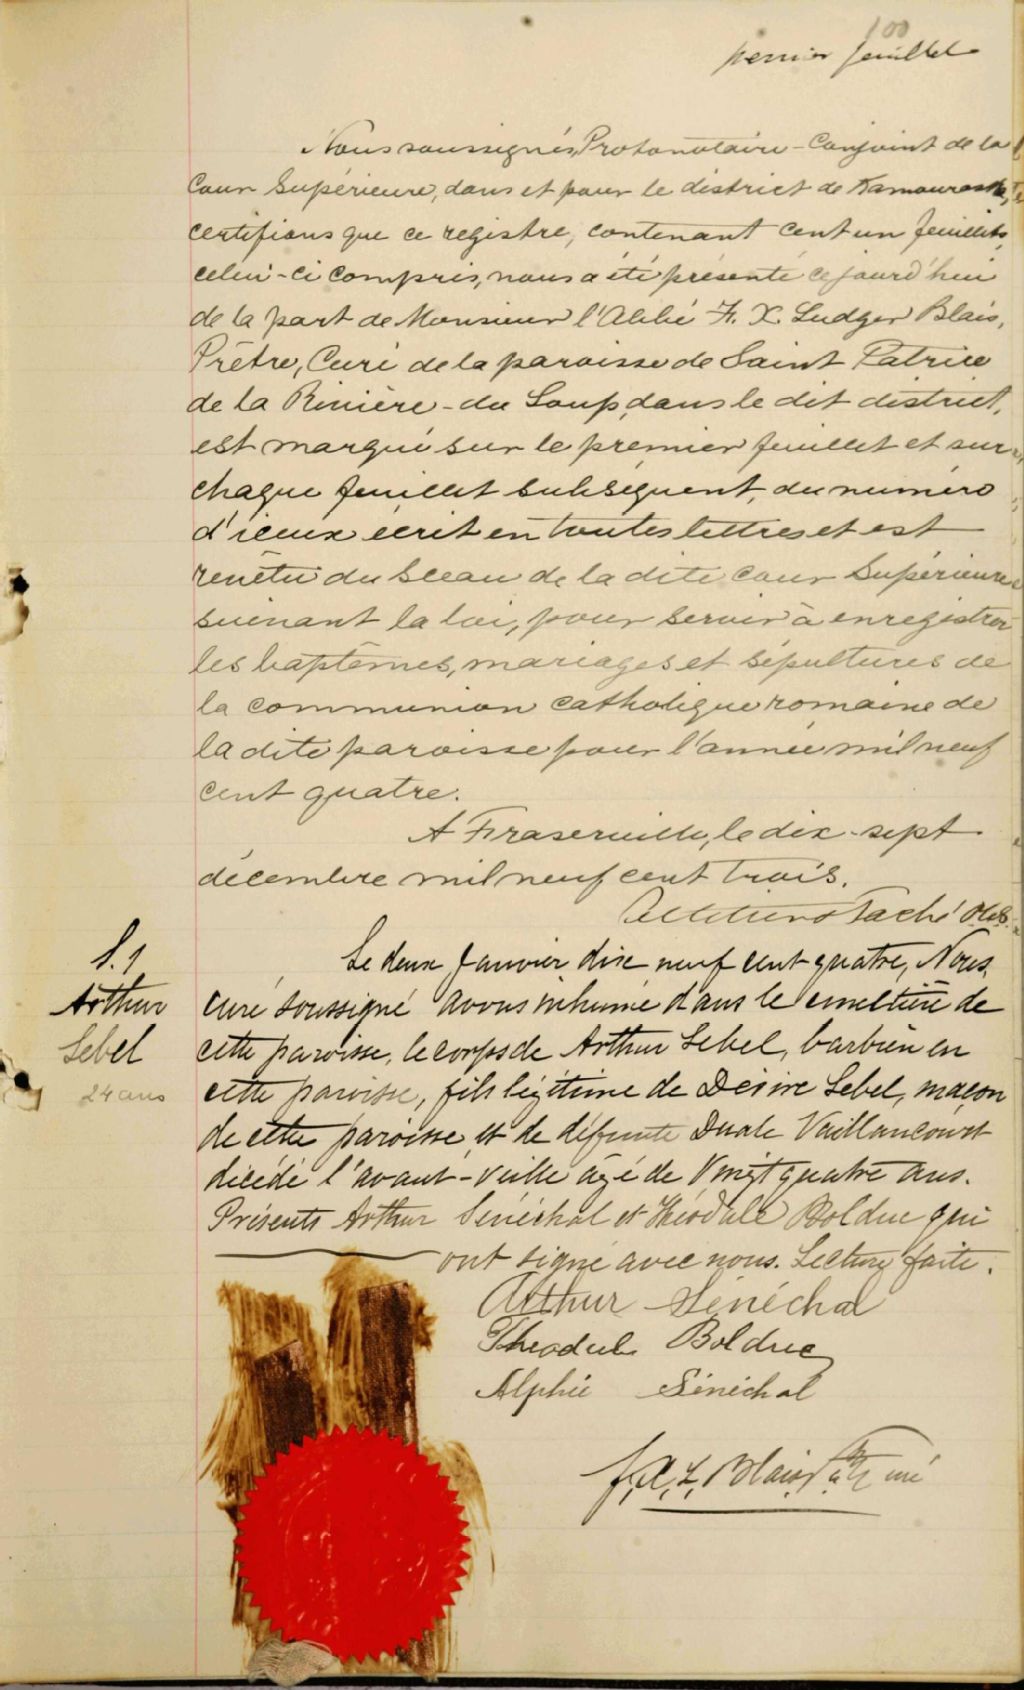 100
premier feuillet
Nous soussignés, Protonotaire-Conjoint de la
Cour Supérieure, dans et pour le district de Kamouraska,
certifions que ce registre, contenant cent un feuillets,
celui-ci compris, nous a été présenté ce jourd'hui
de la part de Monsieur l'Abbé F. X. Ludger Blais,
Prêtre, Curé de la paroisse de Saint Patrice
de la Rivière-du Loup, dans le dit district,
est marqué sur le premier feuillet et sur
chaque feuillet subséquent, du numéro
d'iceux écrit en toutes lettres et est
revêtu du sceau de la dite cour Supérieure
suivant la loi, pour servir à enregistrer
les baptêmes, mariages et sépultures de
la communion catholique romaine de
la dite paroisse pour l'année mil neuf
cent quatre.
A Fraserville, le dix-sept
décembre mil neuf cent trois.
Taché
S. 1
Arthur
Lebel
24 ans
Le deux Janvier dix neuf cent quatre, Nous
curé soussigné avons inhumé dans le cimetière de
cette paroisse, le corps de Arthur Lebel, barbier en
cette paroisse, fils légitime de Désiré Lebel, maçon
de cette paroisse et de défunte Vaillancourt
décédé l'avant-veille âgé de Vingt quatre ans.
Présents Arthur Sénéchal et Théodule Bolduc qui
ont signé avec nous. Lecture faite.
Arthur Sénéchal
Theodule Bolduc
Alphée Sénéchal
F. X. L. Blais Ptre curé